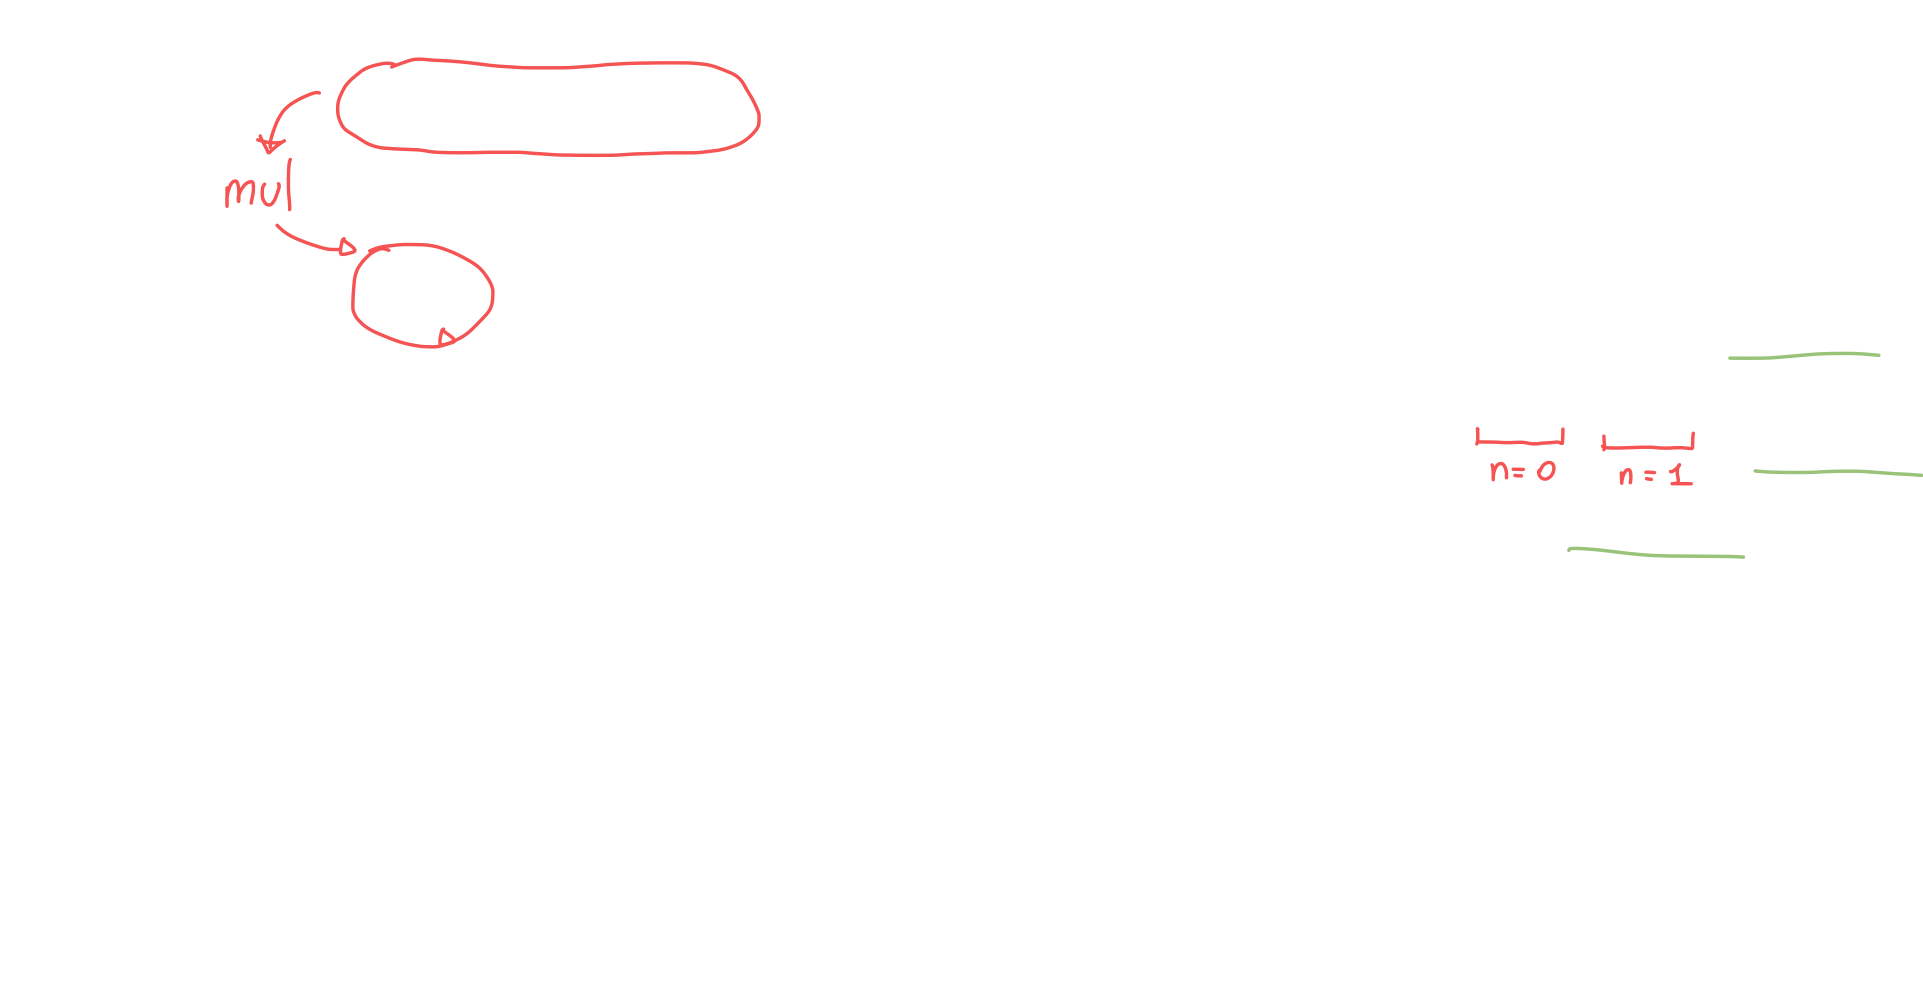 mul
n=0 n=1